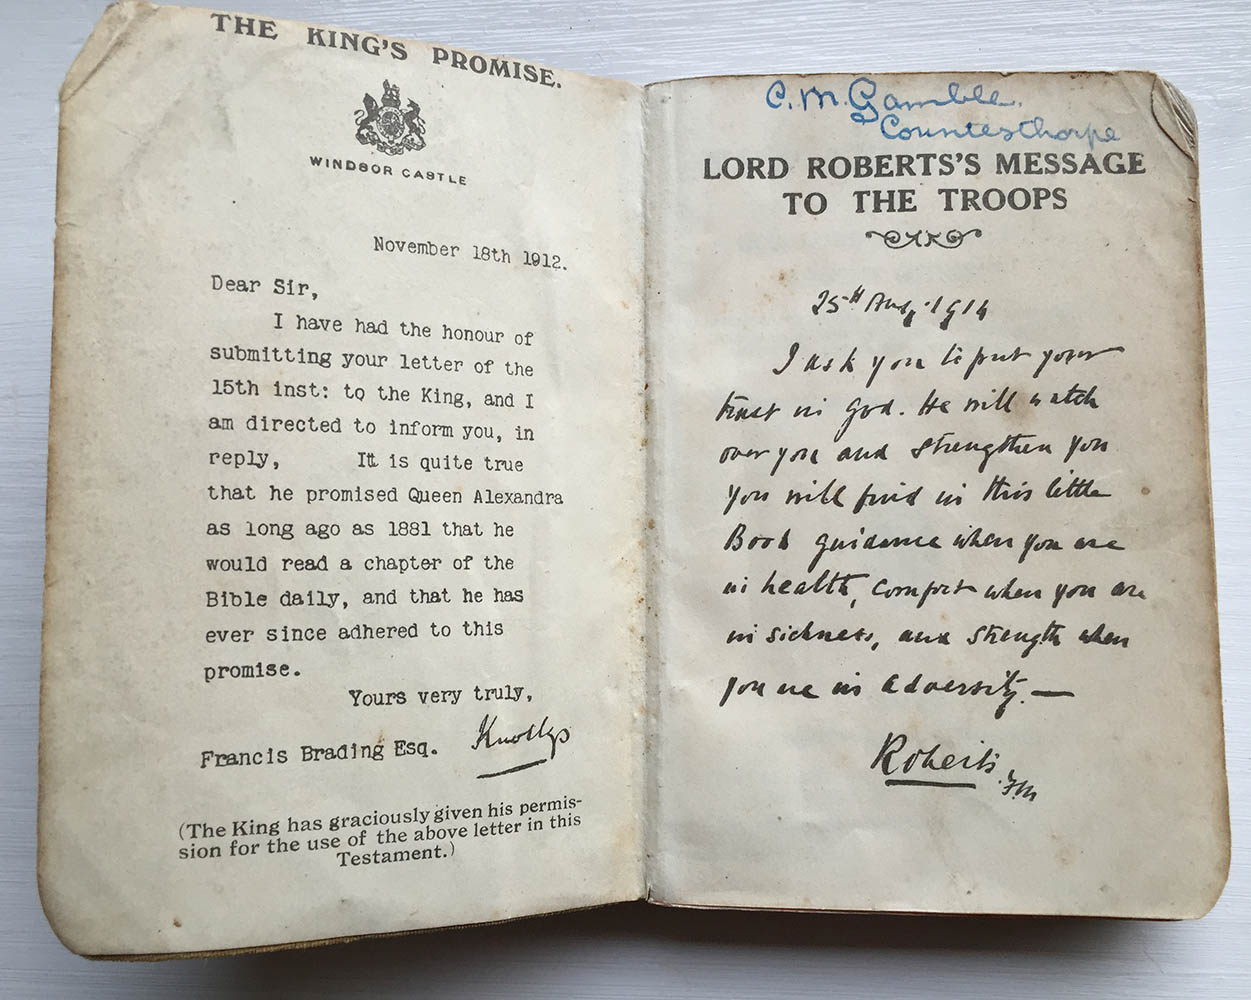 THE KING'S PROMISE.
WINDSOR CASTLE
November 18th 1912.
Dear Sir,
I have had the honour of
submitting your letter of the
15th inst: to the King, and I
am directed to inform you, in
reply, Itt is quite true
that he promised Queen Alexandra
as long ago as 1881 that he
would read a chapter of the
Bible daily, and that he has
ever since adhered to this
promise.
Yours very truly,
Francis Brading Esq. Knollys
(The King has graciously given his permis-
sion for the use of the above letter in this
Testament.)
C. M. Gamble.
Countesthorpe
LORD ROBERTS'S MESSAGE
TO THE TROOPS
25th Aug. 1914
I ask you to put your
trust in God. He will watch
over you and strengthen you
You will find in this little
Book guidance when you are
in health, comfort when you are
in sickness, and strength when
you are in adversity. —
Roberts. FM